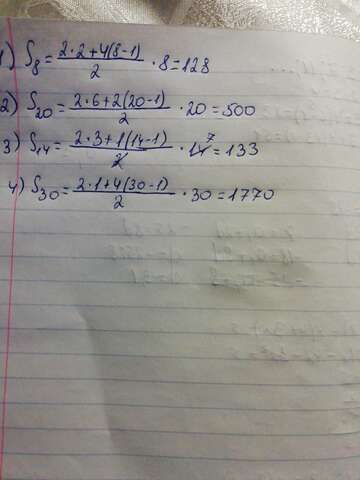 1) S₈ = (2·2+4(8-1))/2 · 8 = 128
2) S₂₀ = (2·6+2(20-1))/2 · 20 = 500
3) S₁₄ = (2·3+1(14-1))/2 · 14 7 = 133
4) S₃₀ = (2·1+4(30-1))/2 · 30 = 1770